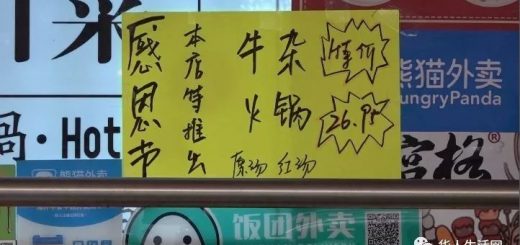 感恩节
本店特推出
牛杂
火锅
原汤 红汤
特价
26.99
熊猫外卖
HungryPanda
锅·Hot
宫格
熊猫外卖
饭团外卖
华人生活网